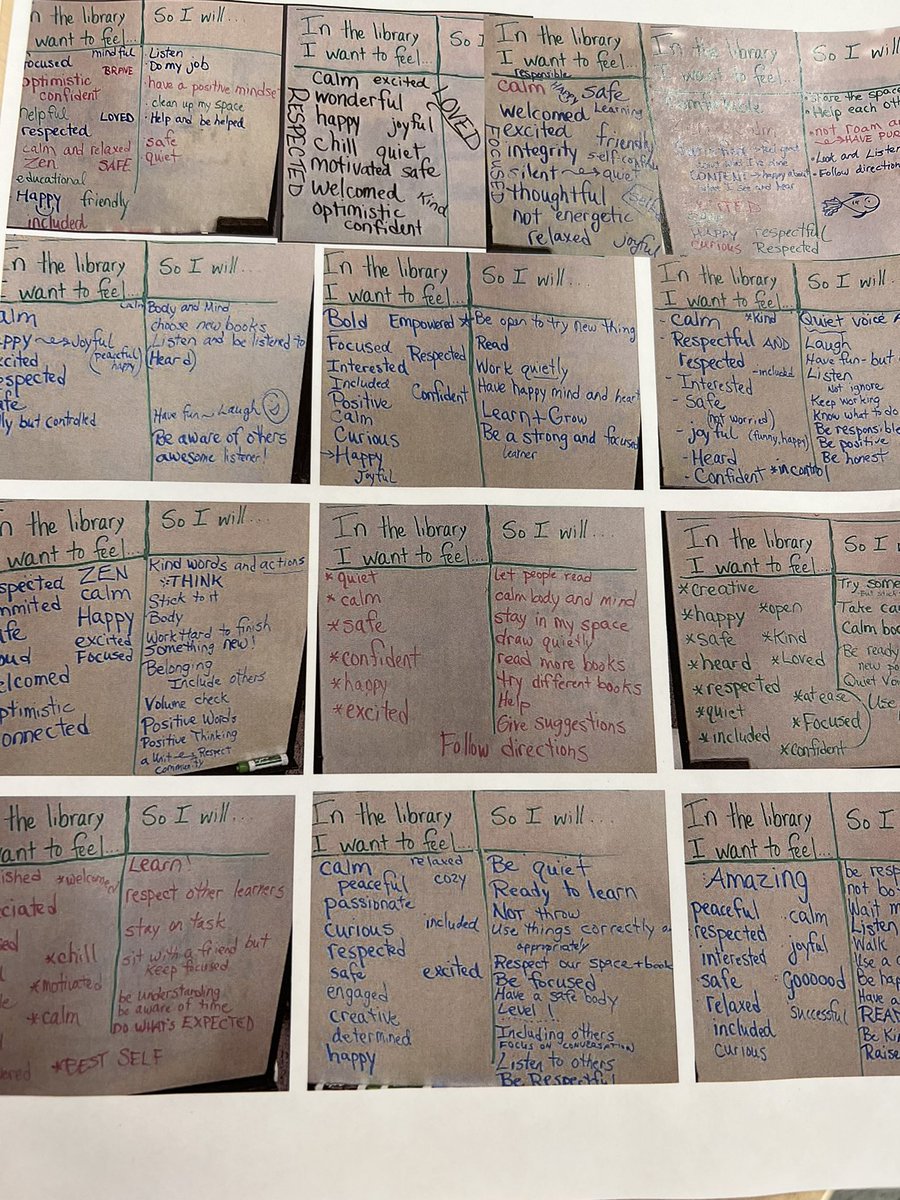 In the library
I want to feel...
focused
mindful
BRAVE
optimistic
confident
helpful
LOVED
respected
calm and relaxed
Zen
SAFE
educational
Happy friendly
included
So I will....
• Listen
• Do my job
• have a positive mindset
• clean up my space
• Help and be helped
safe
quiet
In the library
I want to feel...
So I
RESPECTED
LOVED
calm excited
wonderful
happy joyful
chill quiet
motivated safe
welcomed Kind
optimistic
confident
In the library
I want to feel...
responsible
calm Happy safe
welcomed Learning
excited friendly
FOCUSED
integrity
silent → quiet
thoughtful
not energetic
relaxed joyful
In the library
I want to feel...
CONTENT → happy about
what I see and hear
HAPPY respectful
CURIOUS Respected
So I will
• share the space
• Help each oth
• not roam a
→ HAVE PUR
• Look and Listen
• Follow direction
In the library
I want to feel...
calm
Joyful
(peaceful
happy)
but controlled
So I will....
Calm Body and Mind
choose new books
Listen and be listened to
(Heard)
Have fun ~ Laugh
Be aware of others
awesome listener!
In the library
I want to feel...
Bold Empowered
Focused
Interested Respected
Included
Positive Confident
Calm
Curious
→ Happy
Joyful
So I will....
* Be open to try new thing
Read
Work quietly
Have happy mind and heart
Learn + Grow
Be a strong and focused
learner
In the library
I want to feel...
- Calm *Kind
- Respectful AND
respected
- included
- Interested
- Safe
(not worried)
- joyful (funny, happy)
- Heard
- Confident *in control
So I will....
Quiet voice
Laugh
Have fun - but
Listen
Not ignore
Keep working
Know what to do
Be responsible
Be positive
Be honest
In the library
want to feel...
ZEN
calm
Happy
excited
Focused
So I will....
Kind words and actions
THINK
Stick to it
Body
Work Hard to finish
Something new!
Belonging
Include others
Volume check
Positive Words
Positive Thinking
a Unit → Respect
community
In the library
I want to feel...
* quiet
* calm
* safe
* confident
* happy
* excited
So I will....
Let people read
calm body and mind
stay in my space
draw quietly
read more books
try different books
Help
Give suggestions
Follow directions
In the library
I want to feel...
* creative
* happy *open
* safe *Kind
* heard *Loved
* respected
* quiet *at ease
* Focused
* included
* confident
So I w
Try some
Take ca
Calm bo
Be ready
new po
Quiet Vo
Use
the library
want to feel...
*welcomed
*chill
*motivated
*calm
*BEST SELF
So I will....
Learn!
respect other learners
stay on task
sit with a friend but
keep focused
be understanding
be aware of time
DO WHAT'S EXPECTED
In the library
I want to feel...
calm relaxed
peaceful cozy
passionate
curious included
respected
safe excited
engaged
creative
determined
happy
So I will....
Be quiet
Ready to learn
NOT throw
Use things correctly a
appropriately
Respect our space + book
Be focused
Have a safe body
Level 1!
Including others
FOCUS ON CONVERSATION
Listen to others
Be Respectful
In the library
I want to feel...
Amazing
peaceful calm
respected
interested joyful
safe Goooood
relaxed successful
included
curious
So I
be resp
not bo
Wait m
Listen
Walk
Use a c
Be hap
Have a
REA
Be Ki
Raise